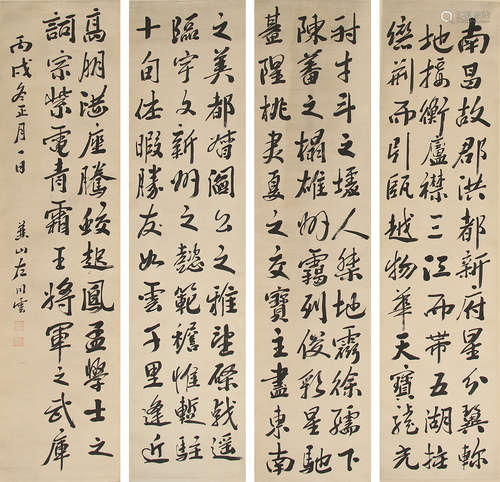 南昌故郡洪都新府星分翼軫
地接衡廬襟三江而帶五湖控
蠻荆而引甌越物華天寶龍光
射牛斗之墟人傑地靈徐孺下
陳蕃之榻雄州霧列俊彩星馳
臺隍枕夷夏之交賓主盡東南
之美都督閻公之雅望棨戟遥
臨宇文新州之懿範襜惟暫駐
十旬休暇勝友如雲千里逢迎
高朋滿座騰蛟起鳳孟學士之
詞宗紫電青霜王將軍之武庫
丙戌冬正月一日